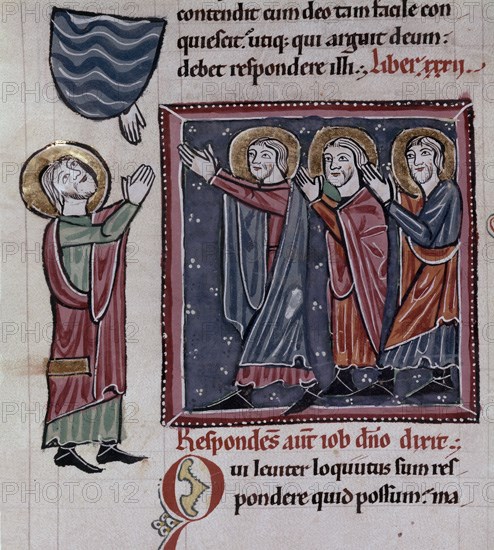 contendit cum deo tam facile con
quiescit. utiq; qui arguit deum:
debet respondere illi:, Liber xxxii
Respondēs aūt iob dño dixit:,
Qui leuiter loquutus sum res
pondere quid possum: ma